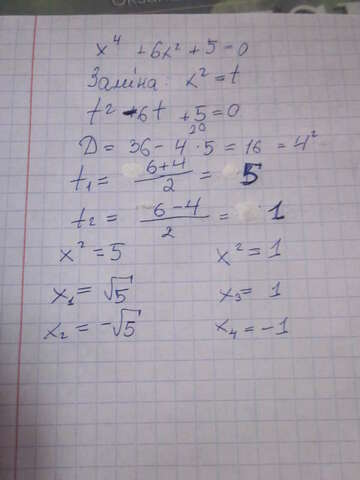 x⁴ + 6x² + 5 = 0
Заміна: x² = t
t² - 6t + 5 = 0
D = 36 - 4 · 5 = 16 = 4²
20
t₁ = (6+4)/2 = 5
t₂ = (6-4)/2 = 1
x² = 5 x² = 1
x₁ = √5 x₃ = 1
x₂ = -√5 x₄ = -1